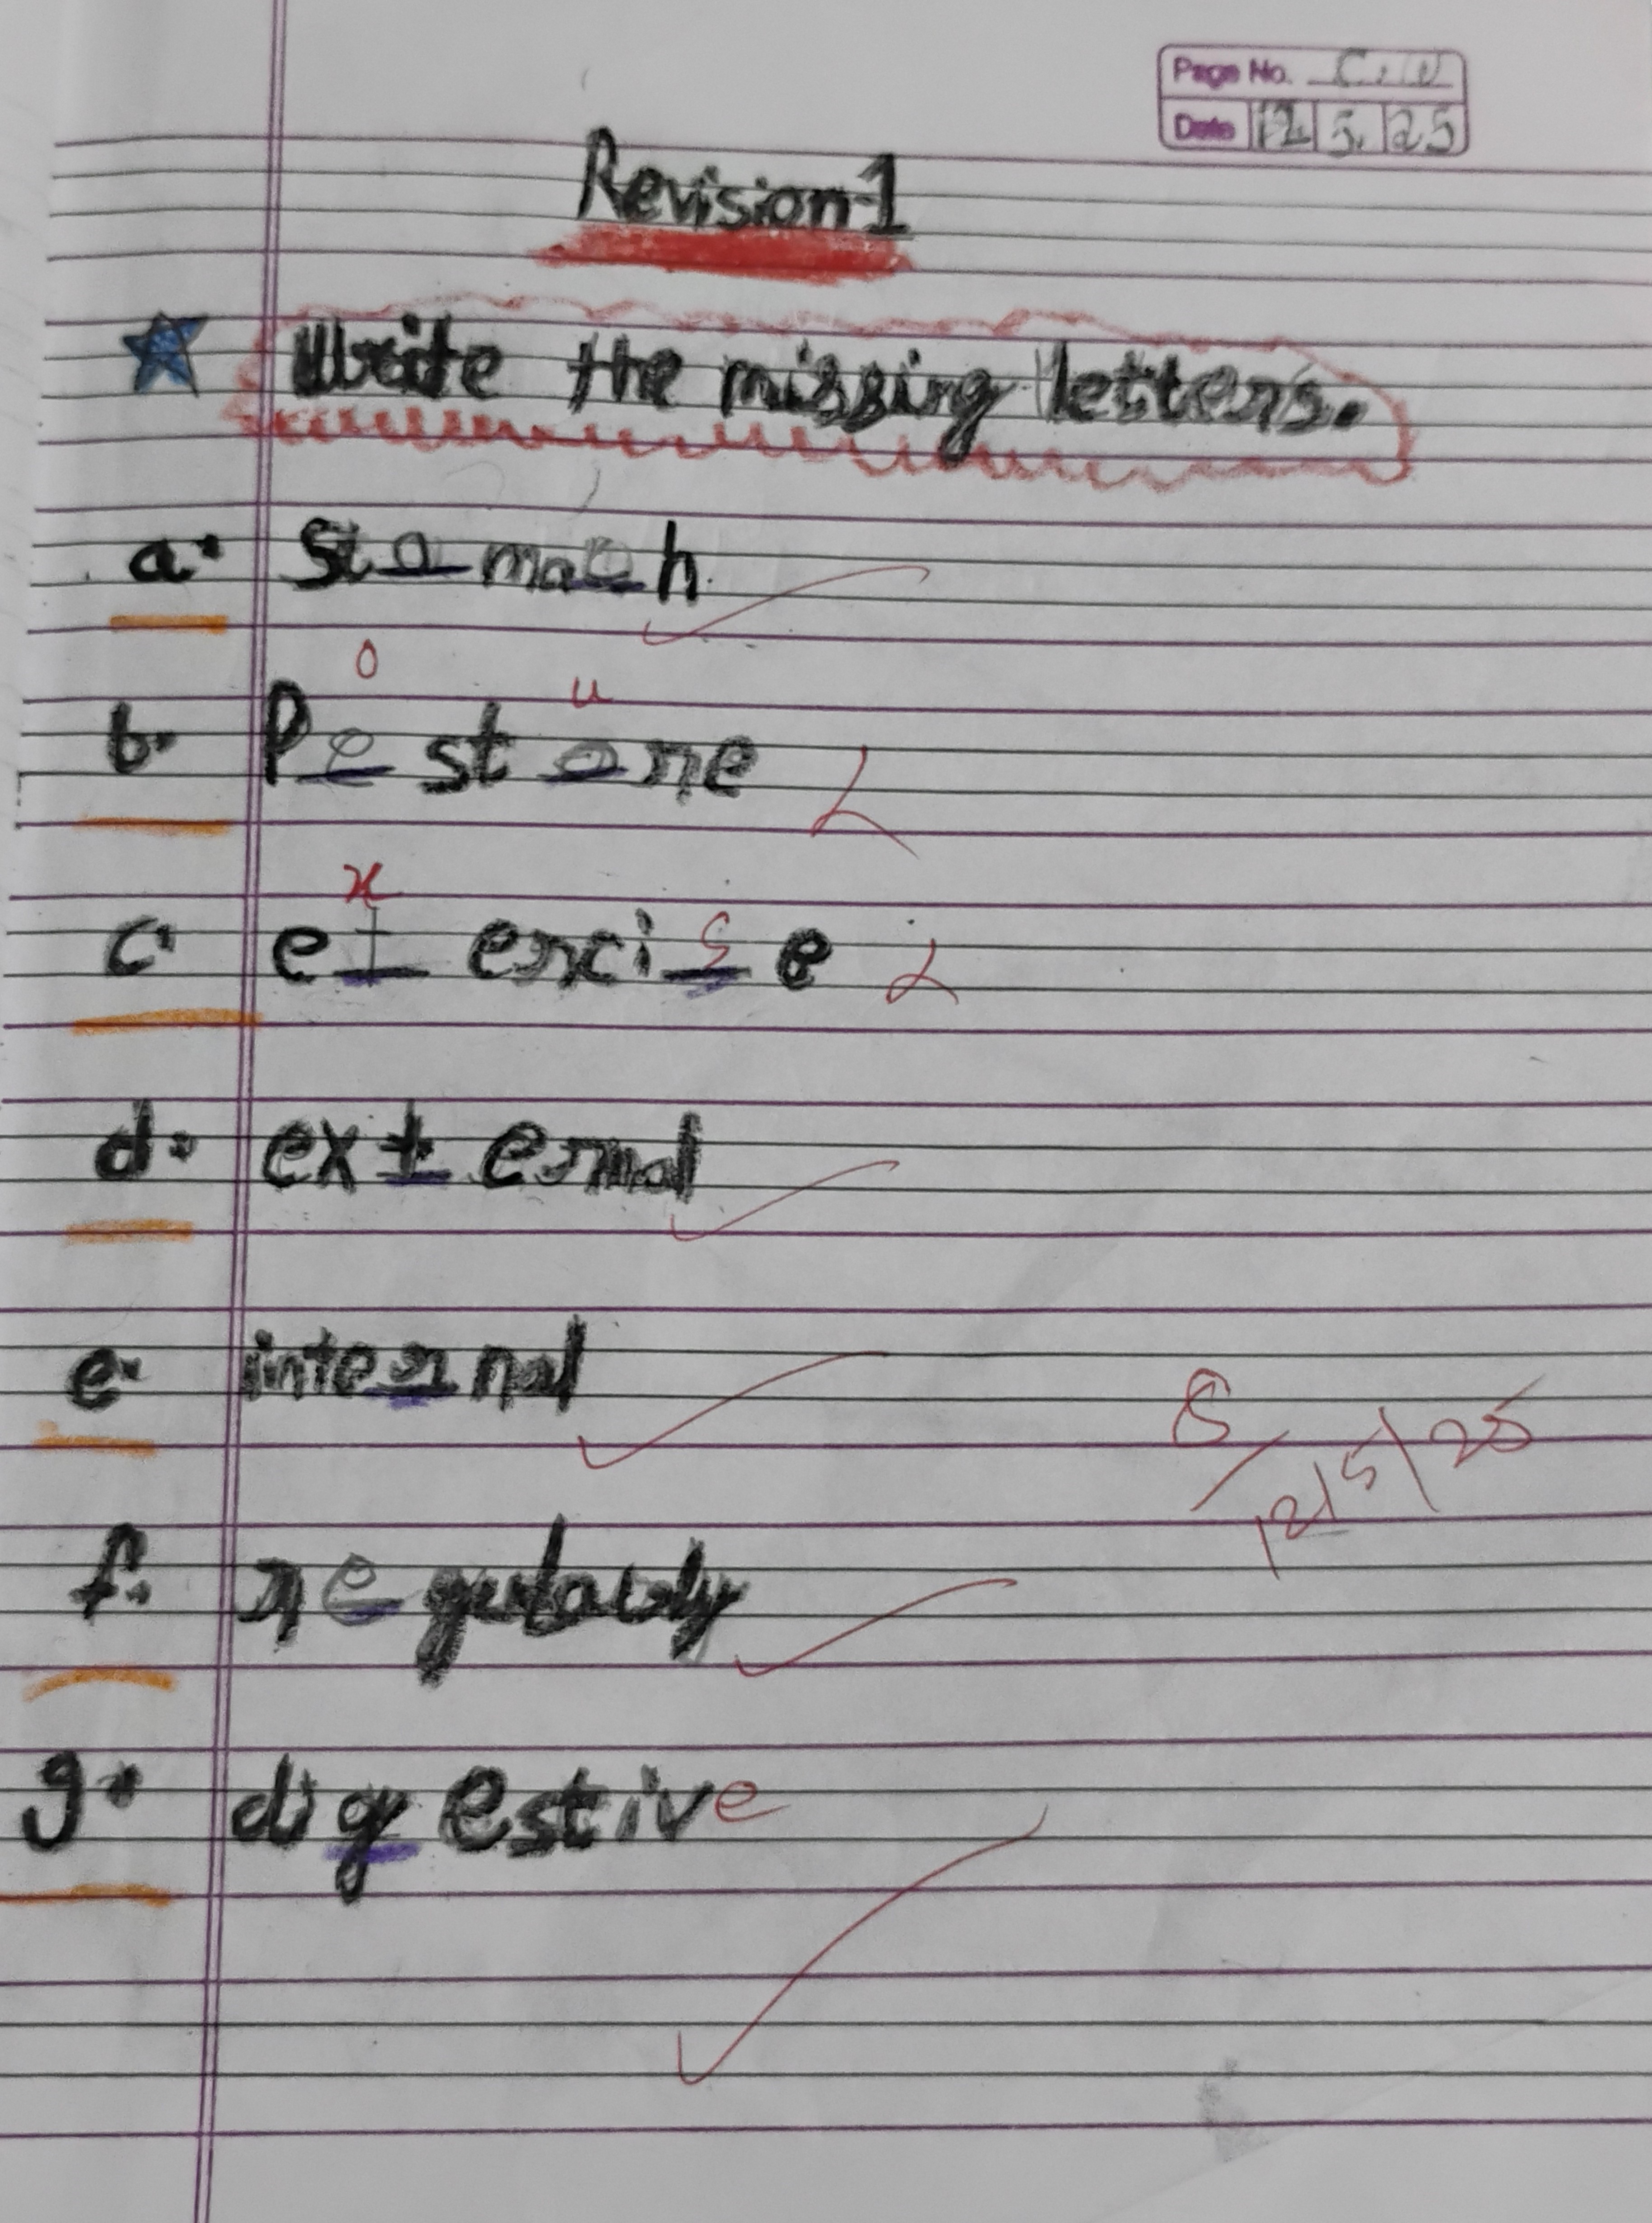 Page No. C.W
Date 12 5. 25
Revision-1
Write the missing letters.
a. Stomach
o u
b. Pestore
x
c. et ercise
d. external
e. internal
f. regularly
g. digestive
12/5/25